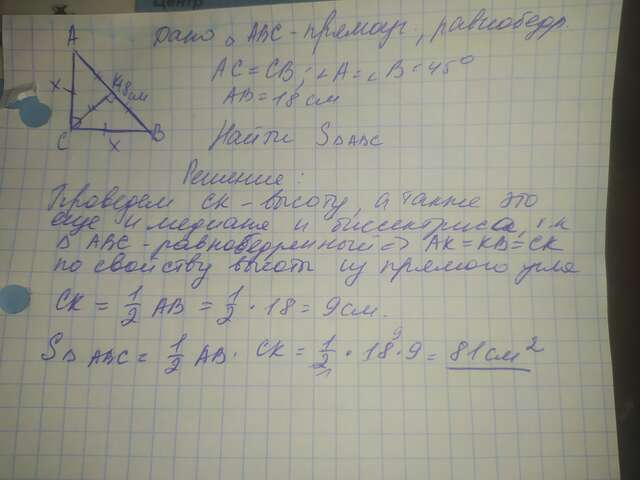 Центр
A
Дано △ABC - прямоуг., равнобедр.
x
18 см
AC = CB; ∠A = ∠B = 45°
AB = 18 см
C
B
x
Найти S△ABC
Решение:
Проведем CK - высоту, а также это
еще и медиана и биссектриса, т.к
△ABC - равнобедренный => AK = KB = CK
по свойству высоты из прямого угла
CK = 1/2 AB = 1/2 · 18 = 9 см.
S△ABC = 1/2 AB · CK = 1/2 · 18 · 9 = 81 см²
9
1